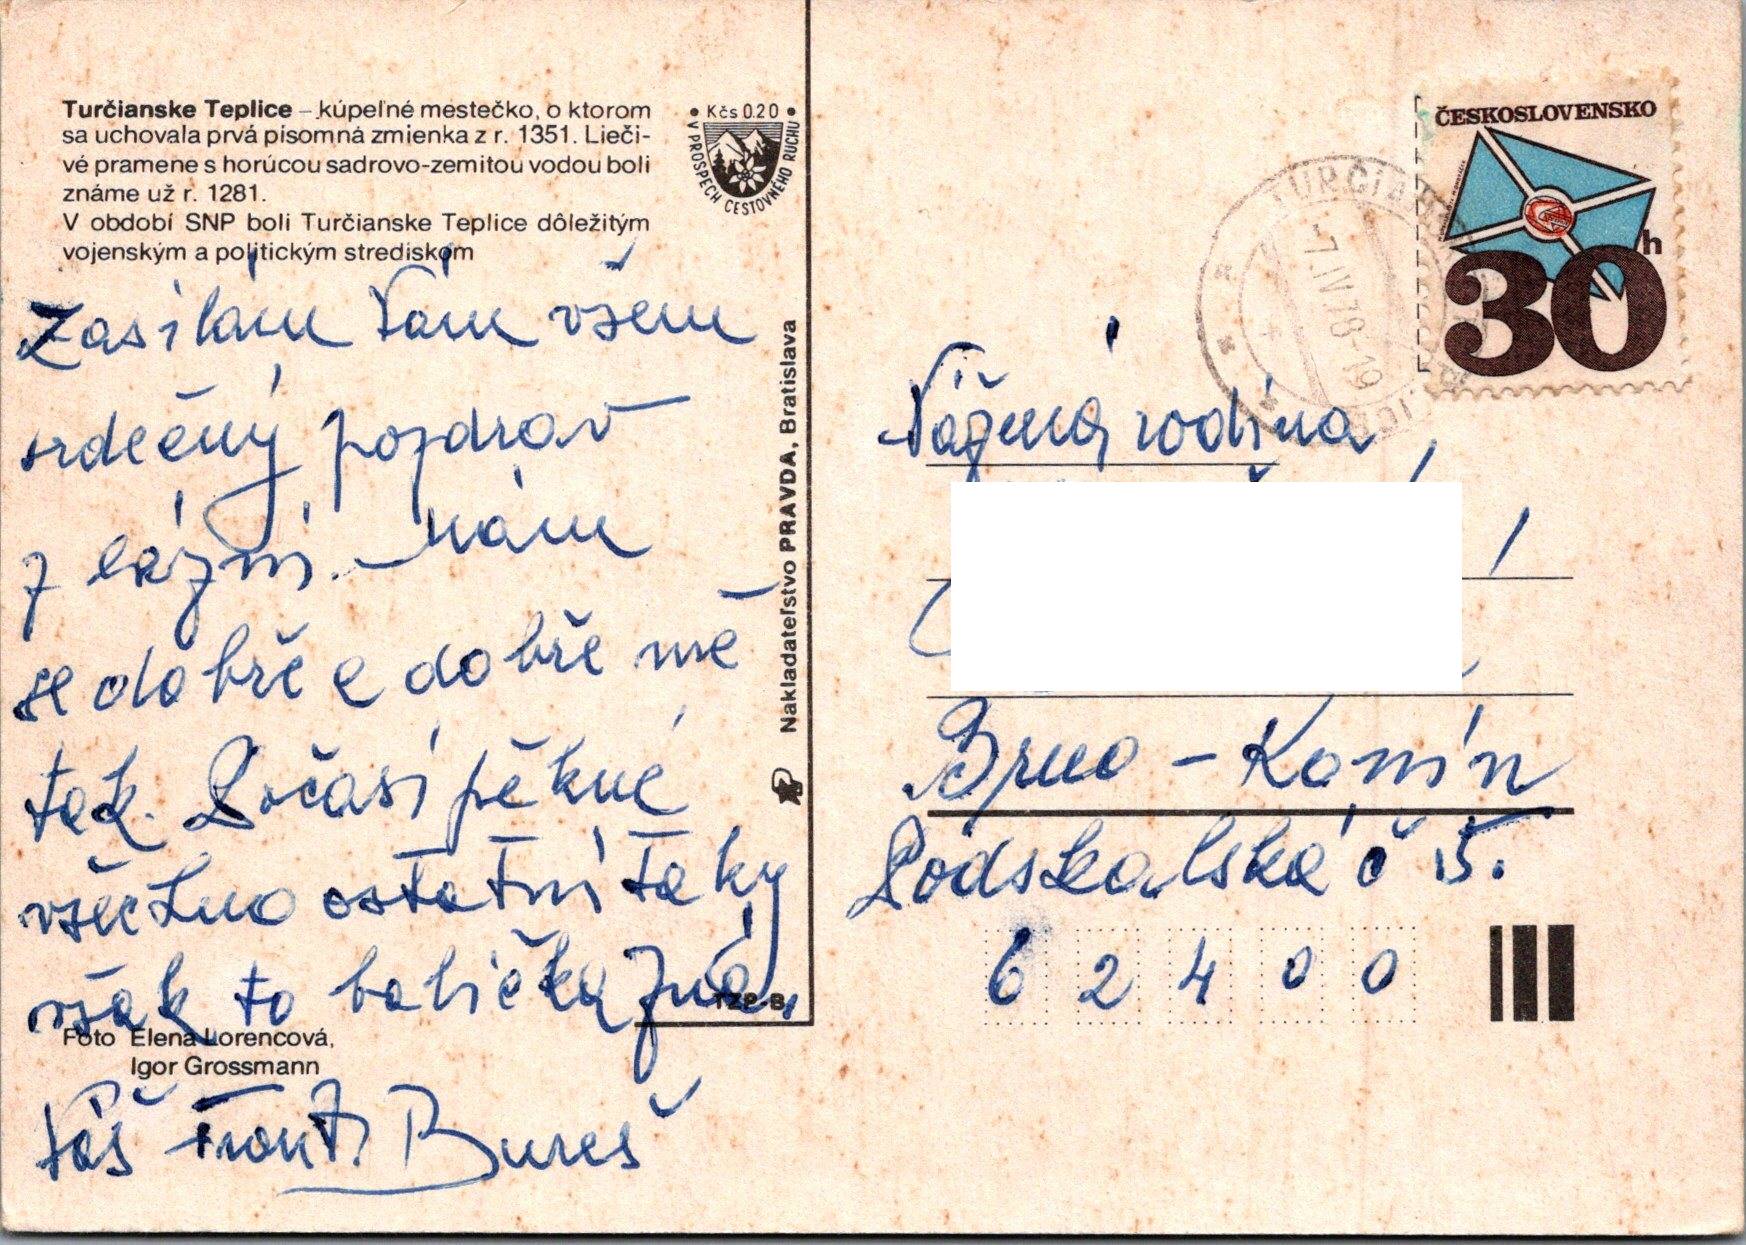 Turčianske Teplice – kúpeľné mestečko, o ktorom
sa uchovala prvá písomná zmienka z r. 1351. Lieči-
vé pramene s horúcou sadrovo-zemitou vodou boli
známe už r. 1281.
V období SNP boli Turčianske Teplice dôležitým
vojenským a politickým strediskom
• Kčs 0.20 •
V PROSPECH CESTOVNÉHO RUCHU
Zasílám Vám všem
srdečný pozdrav
z lázní. – Vám
se dobře e dobře mě
tak. Počasí pěkné
všechno ostatní taky
však to babička zná,
Foto Elena Lorencová,
Igor Grossmann
Váš Frant. Bureš
Nakladateľstvo PRAVDA, Bratislava
TZP-B
ČESKOSLOVENSKO
30h
7.IV.78-19
Vážená rodina,
Brno – Komín
Podskalská č 5.
6 2 4 0 0